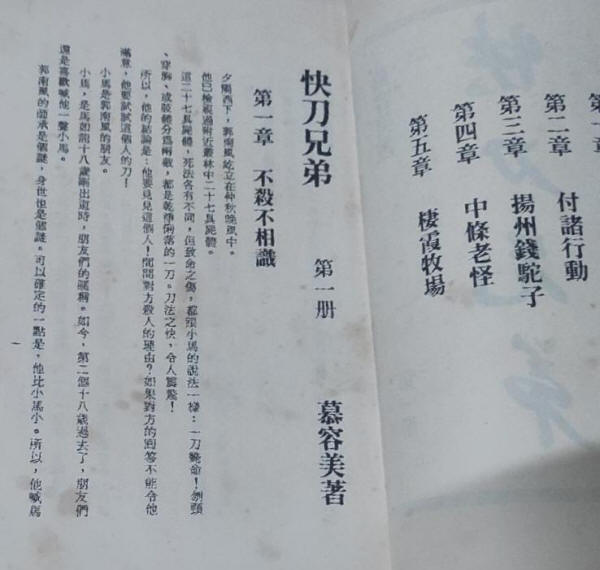 第二章　付諸行動
第三章　揚州錢駝子
第四章　中條老怪
第五章　棲霞牧場
快刀兄弟　第一册　慕容美著
第一章　不殺不相識
夕陽西下，郭南風屹立在仲秋晚風中。
他已檢視過附近叢林中二十七具屍體。
這二十七具屍體，死法各有不同，但致命之傷，都跟小馬的說法一樣：一刀斃命！刎頸
、穿胸、或肢體分爲兩截，都是乾淨俐落的一刀。刀法之快，令人震駭！
所以，他的結論是：他要見見這個人！問問對方殺人的理由？如果對方的回答不能令他
滿意，他要試試這個人的刀！
小馬是郭南風的朋友。
小馬，是馬如龍十八歲剛出道時，朋友們的暱稱。如今，第二個十八歲過去了，朋友們
還是喜歡喊他一聲小馬。
郭南風的師承是個謎，身世也是個謎。可以確定的一點是，他比小馬小。所以，他喊馬
一